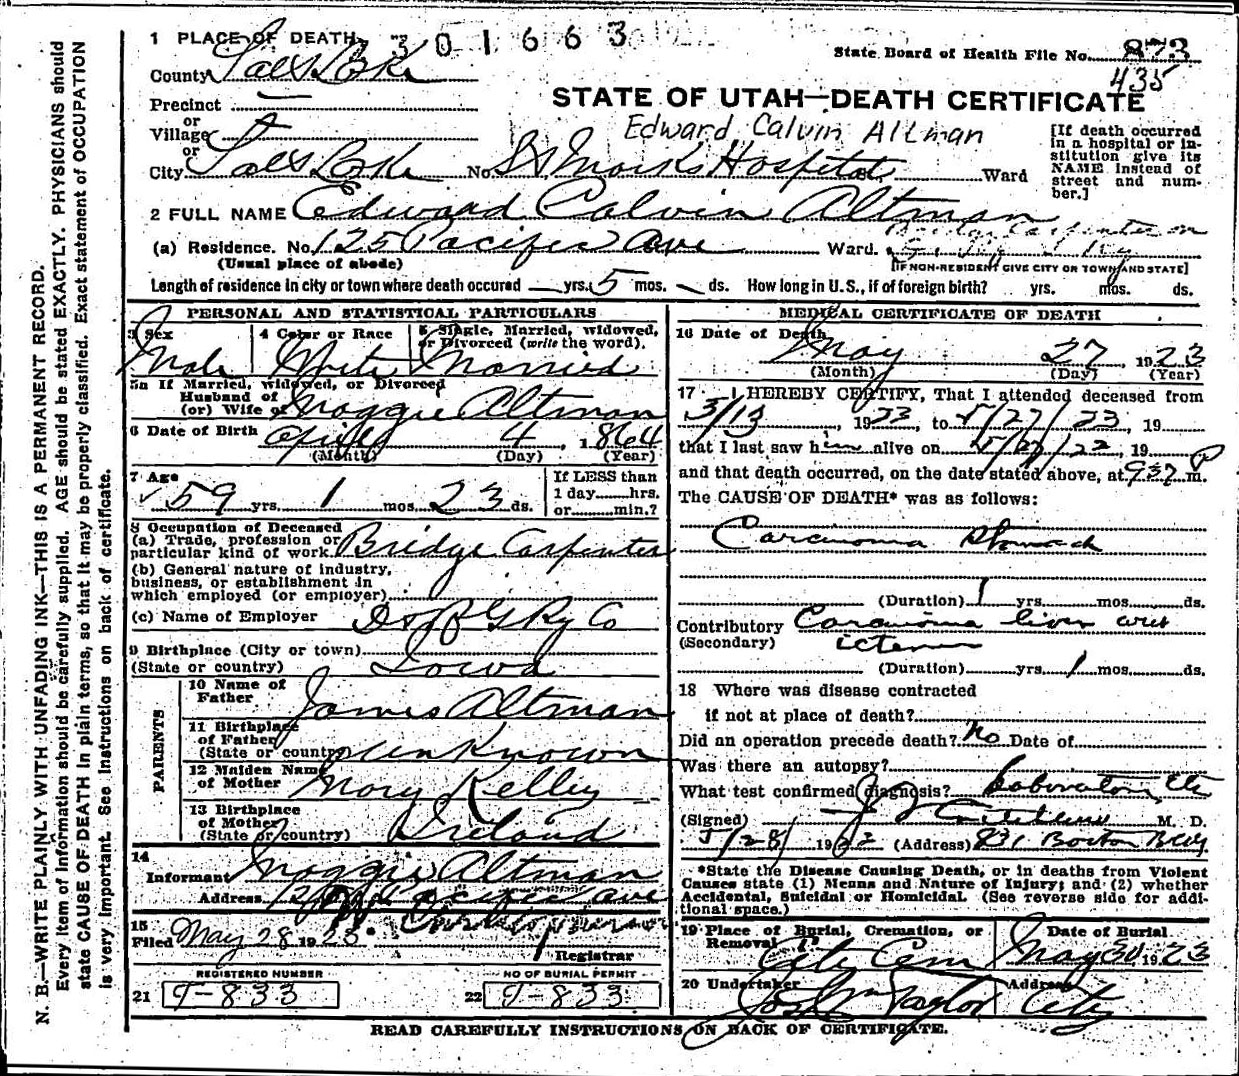 1 PLACE OF DEATH
2301663
State Board of Health File No. 873
435
County Salt Lake
STATE OF UTAH—DEATH CERTIFICATE
Precinct
or
Village
or
Edward Calvin Altman
[If death occurred in a hospital or institution give its NAME instead of street and number.]
City Salt Lake No. St Marks Hospital St. Ward
2 FULL NAME Edward Calvin Altman
Bridge Carpenter on
(a) Residence. No. 125 Pacific Ave Ward.
(Usual place of abode)
[IF NON-RESIDENT GIVE CITY OR TOWN AND STATE]
Length of residence in city or town where death occured — yrs. 5 mos. — ds. How long in U. S., if of foreign birth? yrs. mos. ds.
PERSONAL AND STATISTICAL PARTICULARS
3 Sex
Male
4 Color or Race
White
5 Single, Married, widowed, or Divorced (write the word).
Married
5a If Married, widowed, or Divorced
Husband of
(or) Wife of Maggie Altman
6 Date of Birth April 4, 1864
(Month) (Day) (Year)
7 Age
59 yrs. 1 mos. 23 ds.
If LESS than
1 day......hrs.
or.........min.?
8 Occupation of Deceased
(a) Trade, profession or
particular kind of work. Bridge Carpenter
(b) General nature of industry,
business, or establishment in
which employed (or employer)
(c) Name of Employer D & R G Ry Co
9 Birthplace (City or town)
(State or country) Iowa
PARENTS
10 Name of
Father James Altman
11 Birthplace
of Father
(State or country) unknown
12 Maiden Name
of Mother Mary Kelley
13 Birthplace
of Mother
(State or country) Ireland
14
Informant Maggie Altman
Address Pacific Ave
15
Filed May 28 1923
Registrar
REGISTERED NUMBER
21 T-833
NO OF BURIAL PERMIT
22 T-833
MEDICAL CERTIFICATE OF DEATH
16 Date of Death
May 27, 1923
(Month) (Day) (Year)
17 I HEREBY CERTIFY, That I attended deceased from
5/13, 1923, to 5/27/23, 19
that I last saw him alive on 5/27/23, 19
and that death occurred, on the date stated above, at 937 P m.
The CAUSE OF DEATH* was as follows:
Carcinoma Stomach
(Duration) 1 yrs. mos. ds.
Contributory Carcinoma liver with
(Secondary) icterus
(Duration) yrs. 1 mos. ds.
18 Where was disease contracted
if not at place of death?
Did an operation precede death? No Date of
Was there an autopsy?
What test confirmed diagnosis? Laboratory etc
(Signed) M. D.
5/28/ 1923 (Address) 831 Boston Bldg
*State the Disease Causing Death, or in deaths from Violent
Causes state (1) Means and Nature of Injury; and (2) whether
Accidental, Suicidal or Homicidal. (See reverse side for additional space.)
19 Place of Burial, Cremation, or
Removal City Cem
Date of Burial
May 30, 1923
20 Undertaker
Jos Wm Taylor
Address
City
READ CAREFULLY INSTRUCTIONS ON BACK OF CERTIFICATE.
N. B.—WRITE PLAINLY WITH UNFADING INK—THIS IS A PERMANENT RECORD.
Every item of information should be carefully supplied. AGE should be stated EXACTLY. PHYSICIANS should
state CAUSE OF DEATH in plain terms, so that it may be properly classified. Exact statement of OCCUPATION
is very important. See instructions on back of certificate.